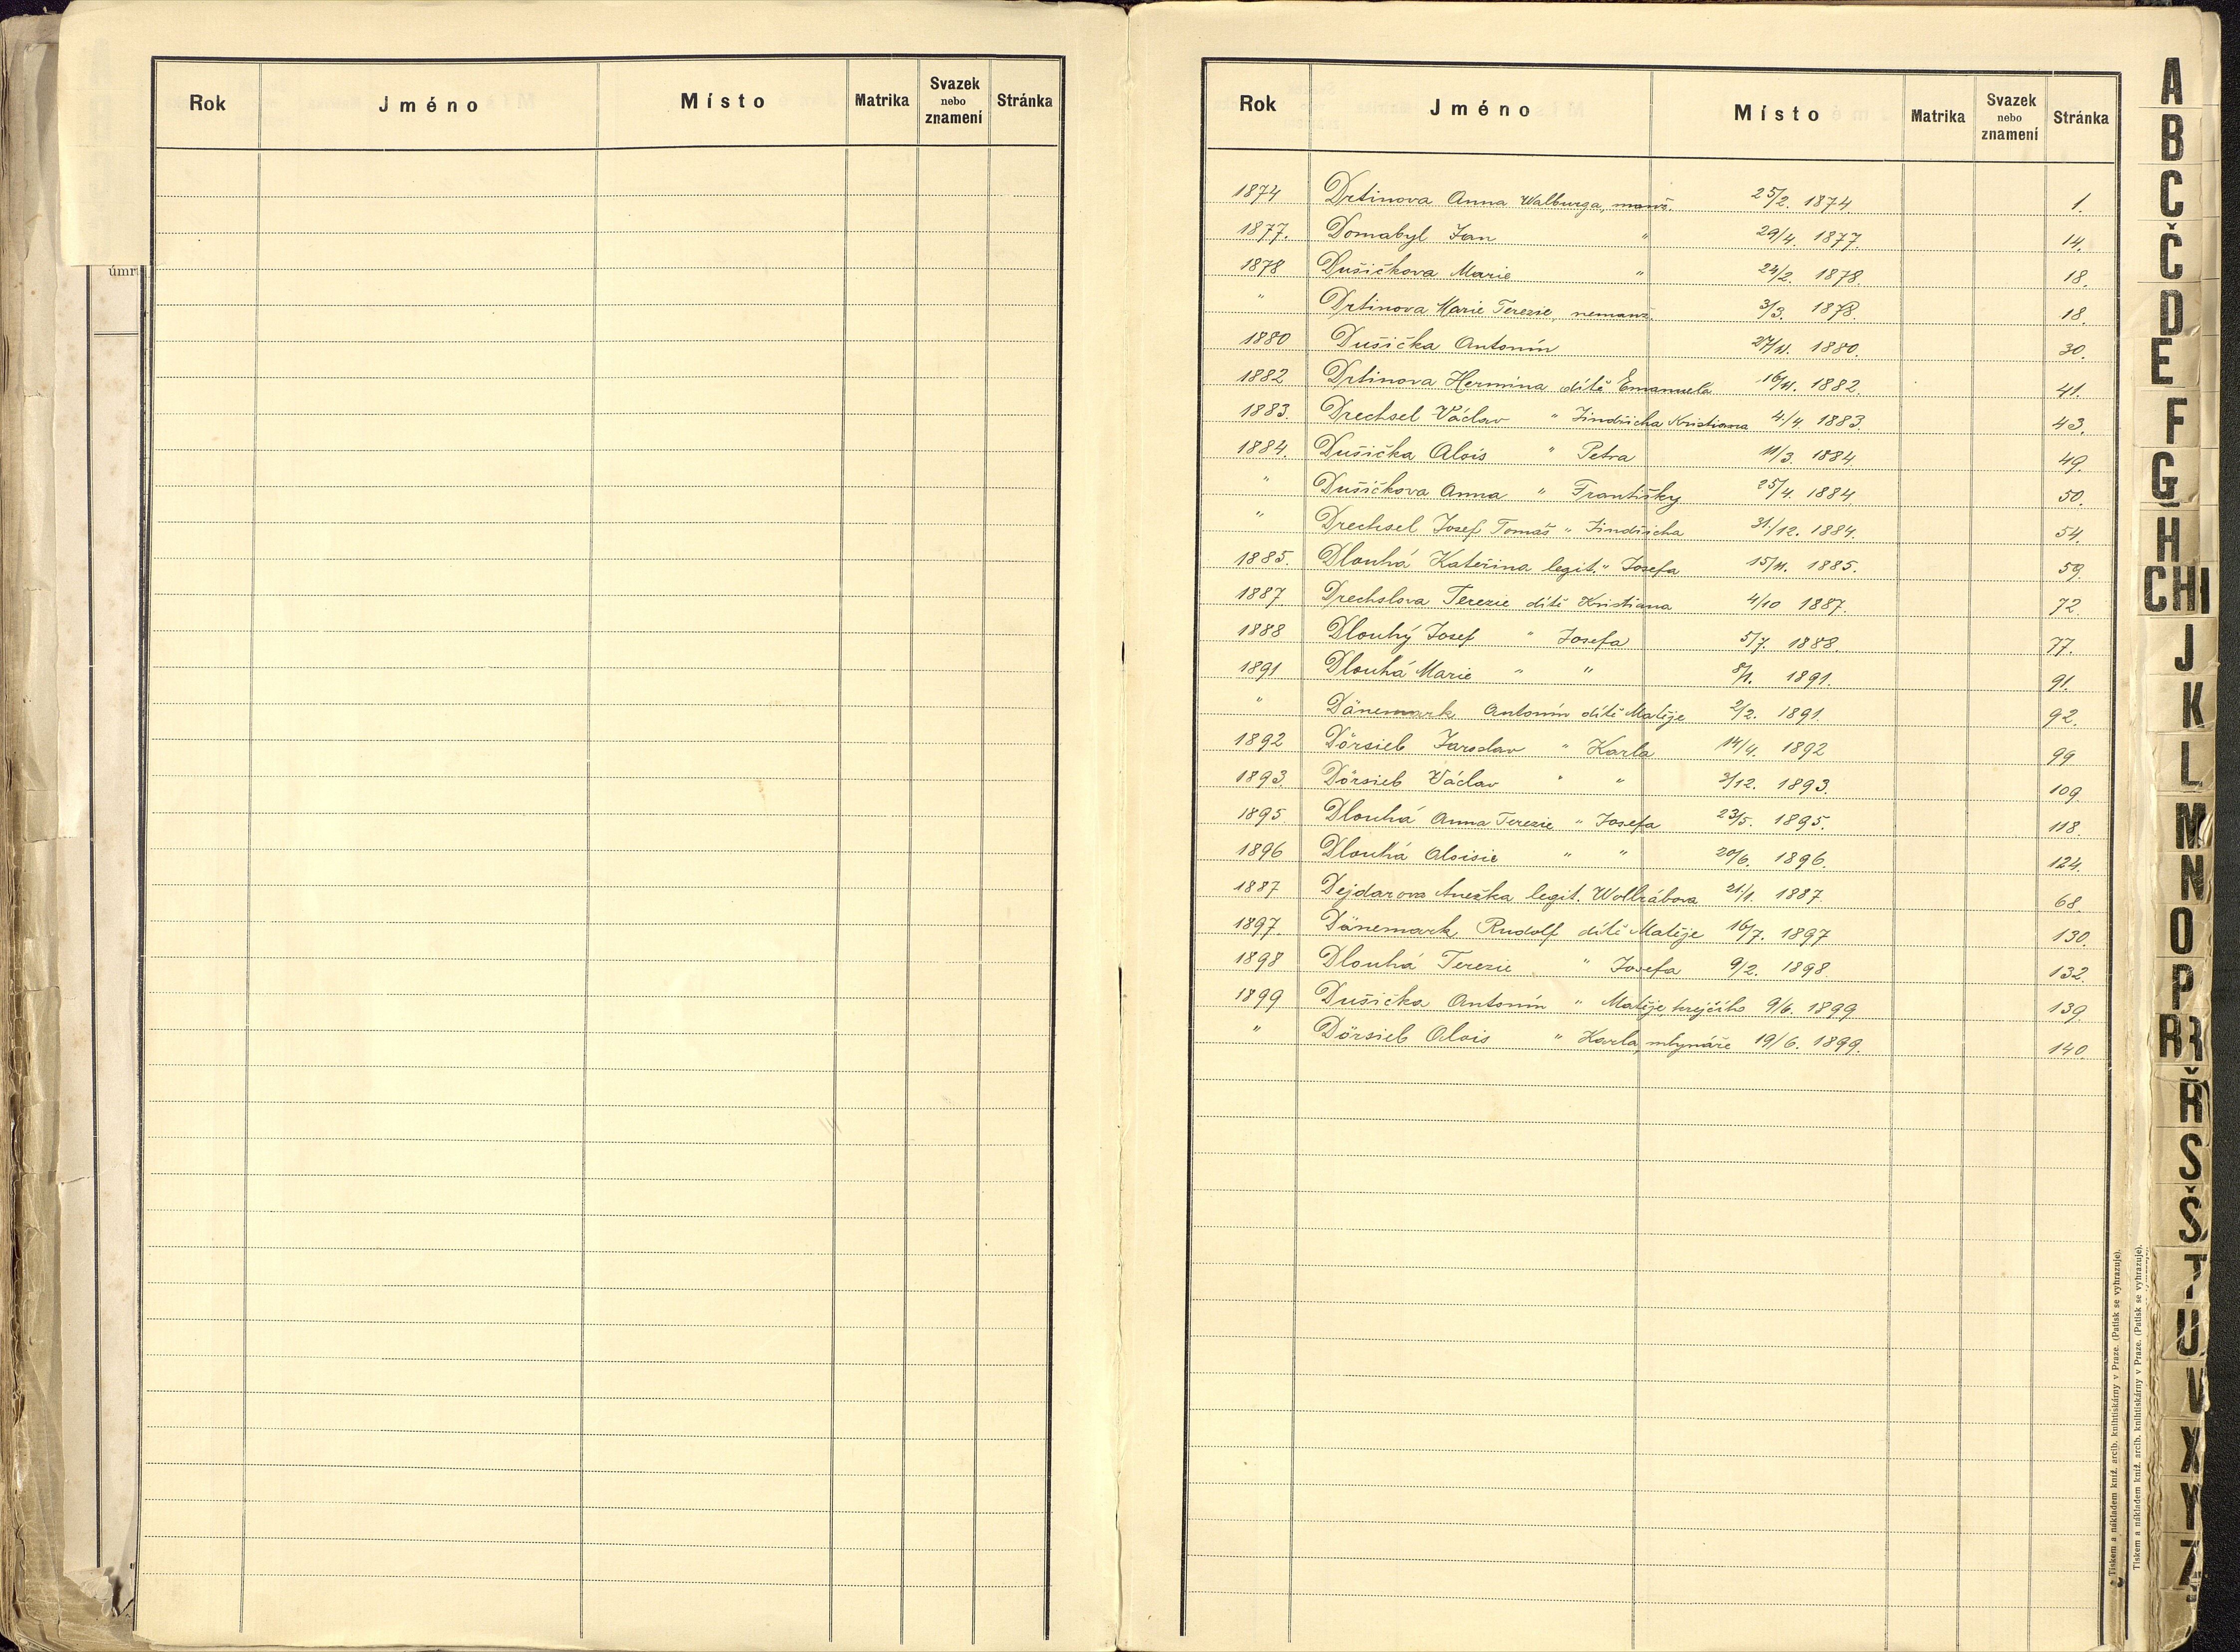 Rok Jméno Místo Matrika Svazek nebo znamení Stránka
úmr
Rok Jméno Místo Matrika Svazek nebo znamení Stránka
1874 Drtinova Anna Walburga, manž. 25/2. 1874 1.
1877. Domabyl Jan " 29/4. 1877 14.
1878 Dušičkova Marie " 24/2. 1878. 18.
" Drtinova Marie Terezie, nemanž. 3/3. 1878. 18.
1880 Dušička Antonín 27/11. 1880. 30.
1882 Drtinova Hermína dítě Emanuela 16/11. 1882. 41.
1883. Drechsel Václav " Jindřicha Kristiana 4/4 1883. 43.
1884. Dušička Alois " Petra 11/3. 1884. 49.
" Dušičkova Anna " Františky 25/4. 1884 50.
" Drechsel Josef Tomáš " Jindřicha 31./12. 1884. 54.
1885. Dlouhá Kateřina legit. " Josefa 15/11. 1885. 59.
1887. Drechslova Terezie dítě Kristiana 4/10 1887. 72.
1888 Dlouhý Josef " Josefa 5/7. 1888. 77.
1891 Dlouhá Marie " " 8/1. 1891. 91.
" Dänemark Antonín dítě Matěje 2/2. 1891. 92.
1892 Dörsieb Jaroslav " Karla 14/4. 1892 99
1893. Dörsieb Václav " " 3/12. 1893. 109.
1895 Dlouhá Anna Terezie " Josefa 23/5. 1895. 118.
1896 Dlouhá Aloisie " " 20/6. 1896. 124.
1887 Dejdarova Anežka legit. Wollrábova 21/1. 1887. 68.
1897. Dänemark Rudolf dítě Matěje 16/7. 1897 130.
1898 Dlouhá Terezie " Josefa 9/2. 1898 132.
1899 Dušička Antonín " Matěje, krejčího 9/6. 1899 139.
" Dörsieb Alois " Karla, mlynáře 19/6. 1899. 140.
Tiskem a nákladem kniž. arcib. knihtiskárny v Praze. (Patisk se vyhrazuje).
Tiskem a nákladem kniž. arcib. knihtiskárny v Praze. (Patisk se vyhrazuje).
A
B
C
Č
D
E
F
G
H
CH
J
K
L
M
N
O
P
R
Ř
S
Š
T
U
V
X
Y
Z